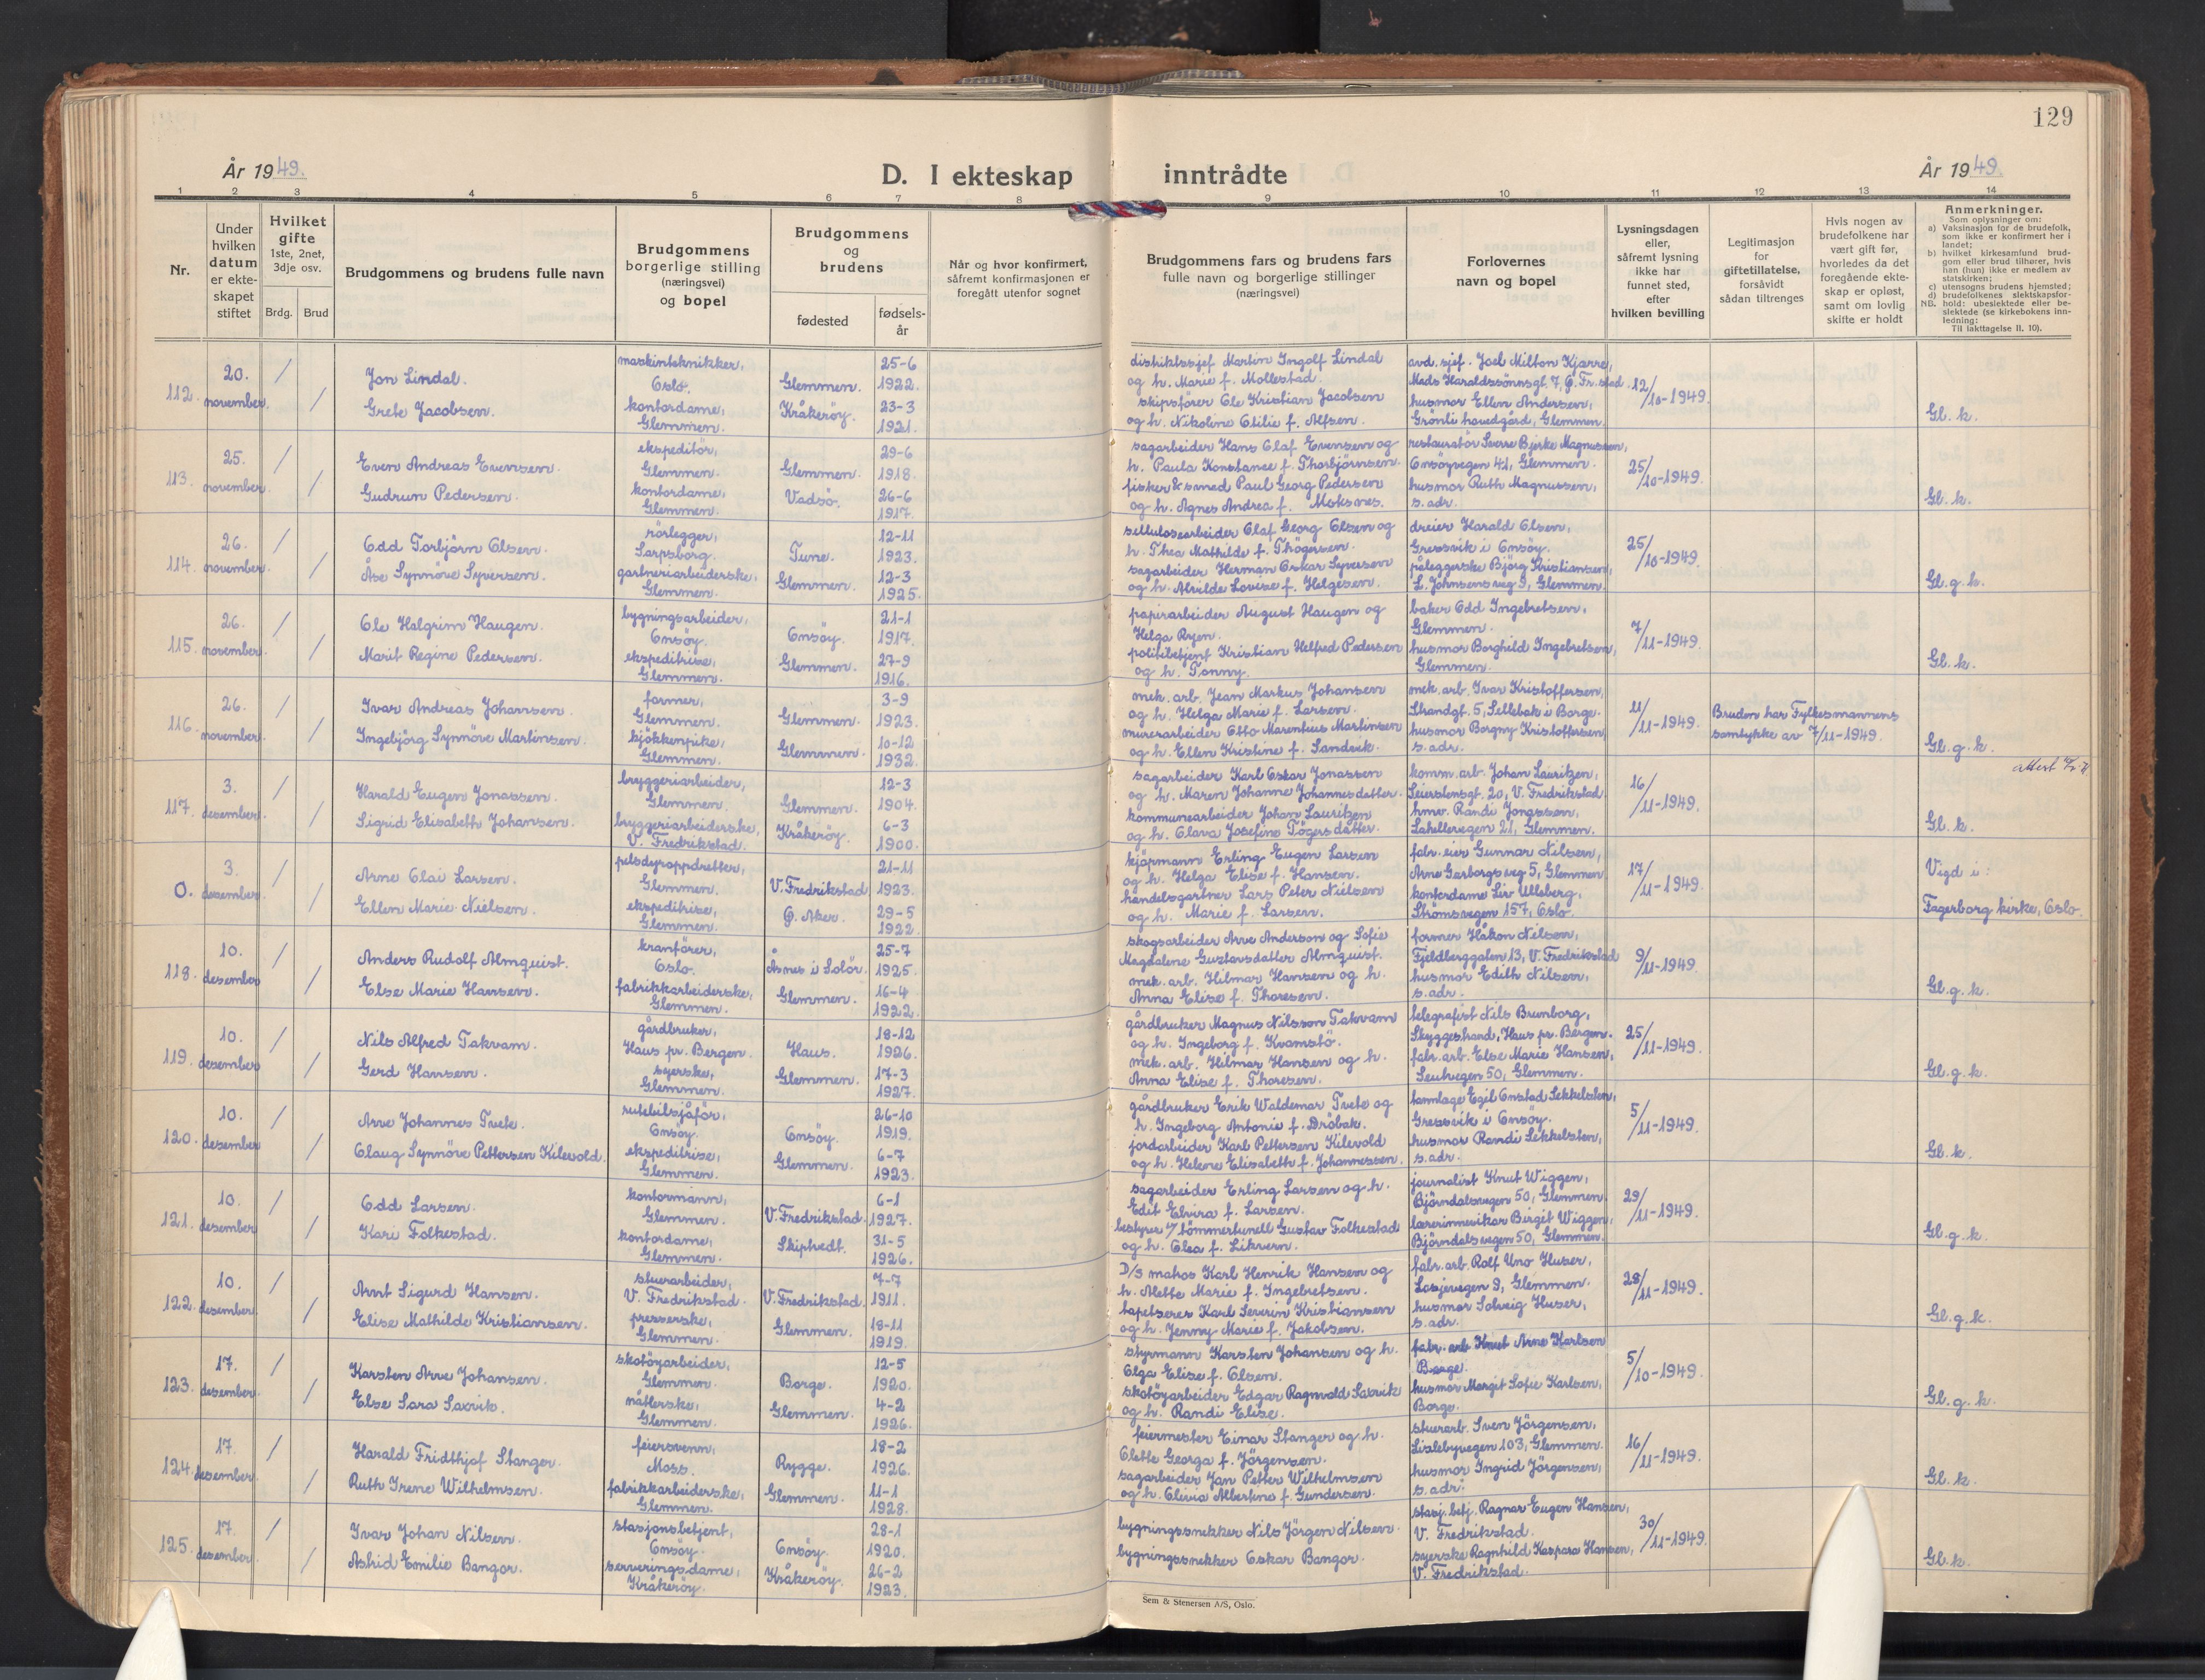 129
År 1949.
D. I ekteskap inntrådte
År 1949.
1 2 3 4 5 6 7 8 9 10 11 12 13 14
Nr.
Under hvilken datum er ekte-skapet stiftet
Hvilket gifte 1ste, 2net, 3dje osv.
Brdg. Brud
Brudgommens og brudens fulle navn
Brudgommens borgerlige stilling (næringsvei) og bopel
Brudgommens og brudens
fødested
fødsels-år
Når og hvor konfirmert, såfremt konfirmasjonen er foregått utenfor sognet
Brudgommens fars og brudens fars fulle navn og borgerlige stillinger (næringsvei)
Forlovernes navn og bopel
Lysningsdagen eller, såfremt lysning ikke har funnet sted, efter hvilken bevilling
Legitimasjon for giftetillatelse, forsåvidt sådan tiltrenges
Hvis nogen av brudefolkene har vært gift før, hvorledes da det foregående ekte-skap er opløst, samt om lovlig skifte er holdt
Anmerkninger.
Som oplysninger om:
a) Vaksinasjon for de brudefolk, som ikke er konfirmert her i landet;
b) hvilket kirkesamfund brud-gom eller brud tilhører, hvis han (hun) ikke er medlem av statskirken;
c) utensogns brudens hjemsted;
d) brudefolkenes slektskapsfor-hold: ubeslektede eller be-slektede (se kirkebokens inn-ledning:
NB.
Til iakttagelse II. 10).
112. 20. november. / /
Jon Lindal.
Grete Jacobsen.
maskintekniker, Oslo.
kontordame, Glemmen.
Glemmen. 25-6 1922.
Kråkerøy. 23-3 1921.
distriktssjef Martin Ingolf Lindal
og h. Marie f. Mollestad.
skipsfører Ole Kristian Jacobsen
og h. Nikoline Otilie f. Alfsen.
avd. sjef. Joel Milton Kjærre,
Mads Haraldssönnsgt. 7, G. Fr.stad.
husmor Ellen Andersen,
Grönli hovedgård, Glemmen.
12/10-1949.
Gl. k.
113. 25. november. / /
Even Andreas Evensen.
Gudrun Pedersen.
ekspeditör, Glemmen.
kontordame, Glemmen.
Glemmen. 29-6 1918.
Vadsö. 26-6 1917.
sagarbeider Hans Olaf Evensen og
h. Paula Konstanse f. Thorbjörnsen.
fisker & smed Paul Georg Pedersen
og h. Agnes Andrea f. Moksnes.
restauratör Sverre Bjerke Magnussen,
Onsöyvegen 41, Glemmen.
husmor Ruth Magnussen,
s. adr.
25/10-1949.
Gl. k.
114. 26. november. / /
Odd Torbjörn Olsen.
Åse Synnöve Syversen.
rörlegger, Sarpsborg.
gartneriarbeiderske, Glemmen.
Tune. 12-11 1923.
Glemmen. 12-3 1925.
sellulosearbeider Olaf Georg Olsen og
h. Thea Mathilde f. Thögersen.
sagarbeider Herman Oskar Syversen
og h. Alvilde Lovise f. Helgesen.
dreier Harald Olsen,
Gressvik i Onsöy.
påleggerske Björg Kristiansen,
L. Johnsensveg 9, Glemmen.
25/10-1949.
Gl. g. k.
115. 26. november. / /
Ole Halgrim Haugen.
Marit Regine Pedersen.
bygningsarbeider, Onsöy.
ekspeditrise, Glemmen.
Onsöy. 21-1 1917.
Glemmen. 27-9 1916.
papirarbeider August Haugen og
Helga Ryen.
politibetjent Kristian Helfred Pedersen
og h. Tonny.
baker Odd Ingebretsen,
Glemmen.
husmor Borghild Ingebretsen,
Glemmen.
7/11-1949.
Gl. k.
116. 26. november. / /
Ivar Andreas Johansen.
Ingebjörg Synnöve Martinsen.
former, Glemmen.
kjökkenpike, Glemmen.
Glemmen. 3-9 1923.
Glemmen. 10-12 1932.
mek. arb. Jean Markus Johansen
og h. Helga Marie f. Larsen.
murerarbeider Otto Marentius Martinsen
og h. Ellen Kristine f. Sandvik.
mek. arb. Ivar Kristoffersen,
Strandgt. 5, Sellebak i Borge.
husmor Borgny Kristoffersen,
s. adr.
11/11-1949.
Bruden har Fylkesmannens
samtykke av 7/11-1949.
Gl. g. k.
117. 3. desember. / /
Harald Eugen Jonassen.
Sigrid Elisabeth Johansen.
bryggeriarbeider, Glemmen.
bryggeriarbeiderske, V. Fredrikstad.
Glemmen. 12-3 1904.
Kråkeröy. 6-3 1900.
sagarbeider Karl Oskar Jonassen
og h. Maren Johanne Johannesdatter.
kommunearbeider Johan Lauritzen
og h. Olava Josefine Tögersdatter.
komm. arb. Johan Lauritzen,
Leierstensgt. 20, V. Fredrikstad.
hmv. Randi Jonassen,
Lahellevegen 21, Glemmen.
16/11-1949.
attest
Gl. k.
0. 3. desember. / /
Arne Olai Larsen.
Ellen Marie Nielsen.
pelsdyroppdretter, Glemmen.
ekspeditrise, Glemmen.
V. Fredrikstad 21-11 1923.
Ø. Aker. 29-5 1922.
kjöpmann Erling Eugen Larsen
og h. Helga Elise f. Hansen.
handelsgartner Lars Peter Nielsen
og h. Marie f. Larsen.
fabr. eier Gunnar Nilsen,
Arne Garborgsveg 5, Glemmen.
kontordame Liv Ulleberg,
Strömsvegen 157, Oslo.
17/11-1949.
Vigd i:
Fagerborg kirke, Oslo.
118. 10. desember / /
Anders Rudolf Almquist.
Else Marie Hansen.
kranförer, Oslo.
fabrikkarbeiderske, Glemmen.
Åsnes i Solör. 25-7 1925.
Glemmen. 16-4 1922.
skogsarbeider Arve Anderson og Sofie
Magdalene Gustavsdatter Almquist.
mek. arb. Hilmar Hansen og h.
Anna Elise f. Thoresen.
former Håkon Nilsen,
Fjeldberggaten 13, V. Fredrikstad
husmor Edith Nilsen,
s. adr.
9/11-1949.
Gl. g. k.
119. 10. desember / /
Nils Alfred Takvam.
Gerd Hansen.
gårdbruker, Haus pr. Bergen.
syerske, Glemmen.
Haus. 18-12 1926.
Glemmen. 17-3 1927.
gårdbruker Magnus Nilsson Takvam
og h. Ingeborg f. Kvamstö.
mek. arb. Hilmar Hansen og h.
Anna Elise f. Thoresen.
telegrafist Nils Brumborg,
Skyggestrand, Haus pr. Bergen.
fabr. arb. Else Marie Hansen,
Leutvegen 50, Glemmen.
25/11-1949.
Gl. g. k.
120. 10. desember / /
Arve Johannes Tvete.
Olaug Synnöve Pettersen Kilevold.
rutebilsjåför, Onsöy.
ekspeditrise, Glemmen.
Onsöy. 26-10 1919.
Glemmen. 6-7 1923.
gårdbruker Erik Waldemar Tvete og
h. Ingeborg Antonie f. Dröbak.
jordarbeider Karl Pettersen Kilevold
og h. Helene Elisabeth f. Johannessen.
tannlæge Egil Onstad Sekkelsten,
Gressvik i Onsöy.
husmor Randi Sekkelsten,
s. adr.
5/11-1949.
Gl. k.
121. 10. desember / /
Odd Larsen.
Kari Folkestad.
kontormann, Glemmen.
kontordame, Glemmen.
V. Fredrikstad. 6-1 1927.
Skiptvedt. 31-5 1926.
sagarbeider Erling Larsen og h.
Edit Elvira f. Larsen.
bestyrer v/ tömmertunell Gustav Folkestad
og h. Olea f. Likvern.
journalist Knut Wiggen,
Björndalsvegen 50, Glemmen.
lærerinnevikar Birgit Wiggen,
Björndalsvegen 50, Glemmen.
29/11-1949.
Gl. g. k.
122. 10. desember. / /
Arnt Sigurd Hansen.
Elise Mathilde Kristiansen.
stuerarbeider, V. Fredrikstad.
presserske, Glemmen.
V. Fredrikstad. 7-7 1911.
Glemmen. 18-11 1919.
D/S matros Karl Henrik Hansen og
h. Alette Marie f. Ingebretsen.
tapetserer Karl Severin Kristiansen
og h. Jenny Marie f. Jakobsen.
fabr. arb. Rolf Uno Huser,
Losjevegen 9, Glemmen.
husmor Solveig Huser,
s. adr.
28/11-1949.
Gl. g. k.
123. 17. desember. / /
Karsten Arve Johansen.
Else Sara Saxvik.
skotöyarbeider, Glemmen.
nåtlerske, Glemmen.
Borge. 12-5 1920.
Glemmen. 4-2 1926.
styrmann Karsten Johansen og h.
Olga Elise f. Olsen.
skotöyarbeider Edgar Ragnvald Saxvik
og h. Randi Elise.
fabr. arb. Knut Arne Karlsen
Borge.
husmor Margit Sofie Karlsen,
Borge.
5/10-1949.
Gl. g. k.
124. 17. desember. / /
Harald Fridthjof Stanger.
Ruth Irene Wilhelmsen.
feiersvenn, Moss.
fabrikkarbeiderske, Glemmen.
Rygge. 18-2 1926.
Glemmen. 11-1 1928.
feiermester Einar Stanger og h.
Olette Georga f. Jörgensen.
sagarbeider Jan Petter Wilhelmsen
og h. Olivia Albertine f. Gundersen.
stuerarb. Sven Jörgensen,
Lislebyvegen 103, Glemmen.
husmor Ingrid Jörgensen,
s. adr.
16/11-1949.
Gl. k.
125. 17. desember / /
Ivar Johan Nilsen.
Astrid Emilie Bangor.
stasjonsbetjent, Onsöy.
serveringsdame, Kråkeröy.
Onsöy. 28-1 1920.
Kråkeröy. 26-2 1923.
bygningssnekker Nils Jörgen Nilsen.
bygningssnekker Oskar Bangor.
stasj. betj. Ragnar Eugen Hansen,
V. Fredrikstad.
syerske Ragnhild Kaspara Hansen,
V. Fredrikstad.
30/11-1949.
Gl. k.
Sem & Stenersen A/S, Oslo.